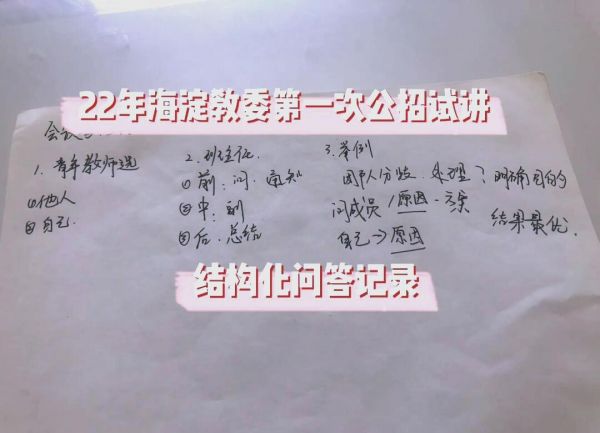 22年海淀教委第一次公招试讲
1. 青年教师遇
①他人
②自己
2. 班主任
①前：问、通知
②中：
③后：总结
3. 举例
团队人分歧、处理？明确目的
问成员/原因、方案
自己→原因
结果最优
结构化问答记录